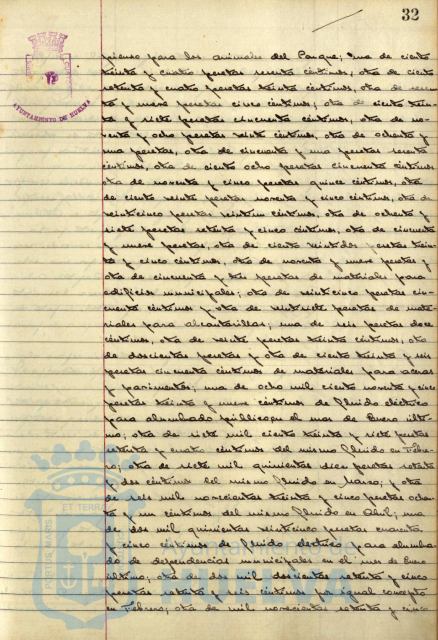 32
AYUNTAMIENTO DE HUELVA
pienso para los animales del Parque; una de ciento
treinta y cuatro pesetas sesenta céntimos, otra de ciento
setenta y cuatro pesetas treinta céntimos, otra de sesen
ta y nueve pesetas cinco céntimos; otra de ciento trein
ta y siete pesetas cincuenta céntimos, otra de no
venta y ocho pesetas veinte céntimos, otra de ochenta y
una pesetas, otra de cincuenta y una pesetas sesenta
céntimos, otra de ciento ocho pesetas cincuenta céntimos
otra de noventa y cinco pesetas quince céntimos, otra
de ciento veinte pesetas noventa y cinco céntimos, otra de
veinticinco pesetas céntimos, otra de ochenta y
siete pesetas setenta y cinco céntimos, otra de cincuenta
y nueve pesetas, otra de ciento veintidos pesetas trein
ta y cinco céntimos, otra de noventa y nueve pesetas y
otra de cincuenta y tres pesetas de materiales para
edificios municipales; otra de veinticinco pesetas cin
cuenta céntimos y otra de veintisiete pesetas de mate
riales para alcantarillas; una de seis pesetas doce
céntimos, otra de veinte pesetas treinta céntimos, otra
de doscientas pesetas y otra de ciento treinta y seis
pesetas cincuenta céntimos de materiales para aceras
y pavimentos; una de ocho mil ciento noventa y cinco
pesetas treinta y nueve céntimos de fluido eléctrico
para alumbado público en el mes de Enero últi
mo; otra de siete mil ciento treinta y siete pesetas
setenta y cuatro céntimos del mismo fluido en Febre
ro; otra de siete mil quinientas diez pesetas setenta
y dos céntimos del mismo fluido en Marzo; y otra
de seis mil novecientas treinta y cinco pesetas ochen
ta y un céntimos del mismo fluido en Abril; una
de dos mil quinientas veinticinco pesetas cuarenta
y cinco céntimos de fluido electrico para alumbra
do de dependencias municipales en el mes de Enero
último; otra de dos mil doscientas setenta y cinco
pesetas setenta y seis céntimos por igual concepto
en Febrero; otra de mil novecientas setenta y cinco
PORTUS MARIS ET TERRAE
Ayuntamiento de
HUELVA